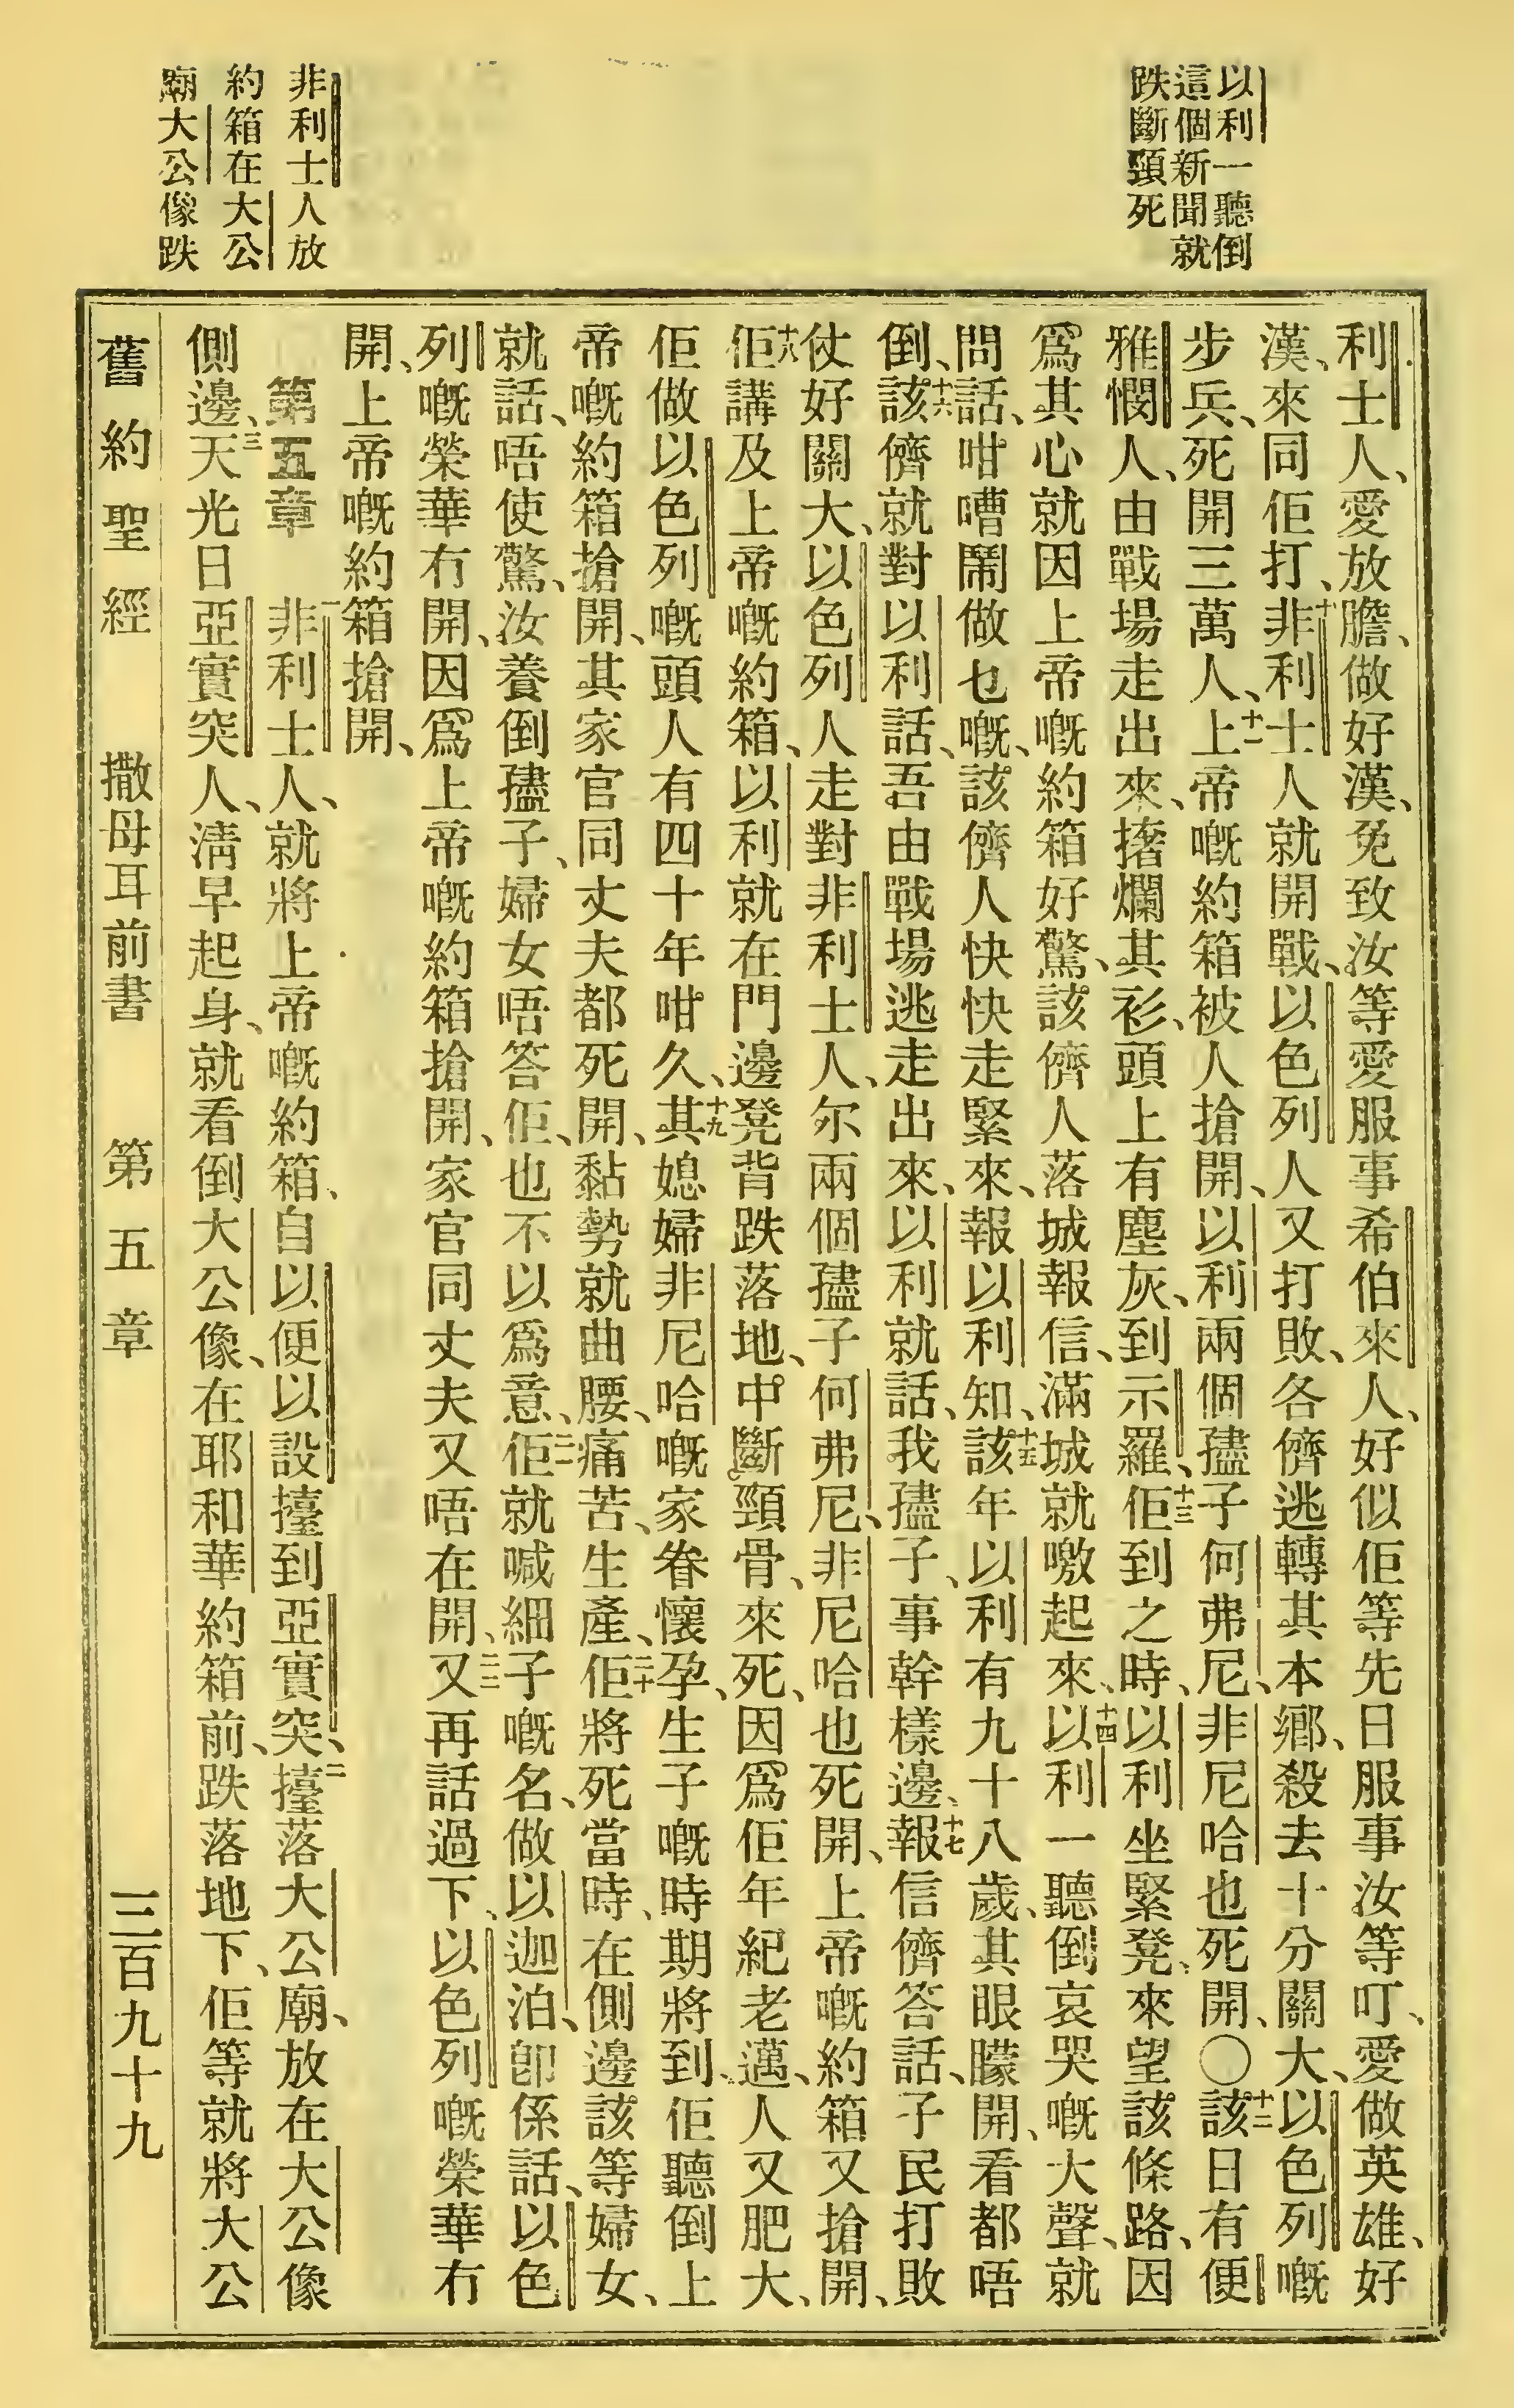 以利一聽倒
這個新聞就
跌斷頸死
非利士人放
約箱在大公
廟大公像跌
利士人、愛放膽、做好漢、免致汝等愛服事希伯來人、好似佢等先日服事汝等叮、愛做英雄、好
漢、來同佢打、十非利士人就開戰、以色列人又打敗、各儕逃轉其本鄉、殺去十分關大、以色列嘅
步兵、死開三萬人、十一上帝嘅約箱被人搶開、以利兩個孻子何弗尼、非尼哈也死開、〇十二該日有便
雅憫人、由戰場走出來、撦爛其衫、頭上有塵灰、到示羅、十三佢到之時、以利坐緊凳、來望該條路、因
爲其心就因上帝嘅約箱好驚、該儕人落城報信、滿城就噭起來、十四以利一聽倒哀哭嘅大聲、就
問話、咁嘈鬧做乜嘅、該儕人快快走緊來、報以利知、十五該年以利有九十八歲、其眼矇開、看都唔
倒、十六該儕就對以利話、吾由戰場逃走出來、以利就話、我孻子、事幹樣邊、十七報信儕答話、子民打敗
仗好關大、以色列人走對非利士人、尔兩個孻子何弗尼、非尼哈也死開、上帝嘅約箱又搶開、
十八佢講及上帝嘅約箱、以利就在門邊凳背跌落地、中斷頸骨、來死、因爲佢年紀老邁、人又肥大、
佢做以色列嘅頭人有四十年咁久、十九其媳婦非尼哈嘅家眷懷孕、生子嘅時期將到、佢聽倒上
帝嘅約箱搶開、其家官同丈夫都死開、黏勢就曲腰、痛苦、生產、二十佢將死當時、在側邊該等婦女、
就話、唔使驚、汝養倒孻子、婦女唔答佢、也不以爲意、二一佢就喊細子嘅名、做以迦泊、卽係話、以色
列嘅榮華冇開、因爲上帝嘅約箱搶開、家官同丈夫又唔在開、二二又再話過下、以色列嘅榮華冇
開、上帝嘅約箱搶開、
第五章 一非利士人、就將上帝嘅約箱、自以便以設擡到亞實突、二擡落大公廟、放在大公像
側邊、三天光日亞實突人、淸早起身、就看倒大公像、在耶和華約箱前、跌落地下、佢等就將大公
舊約聖經 撒母耳前書 第五章 三百九十九